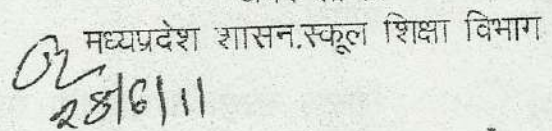 मध्यप्रदेश शासन,स्कूल शिक्षा विभाग
28/6/11